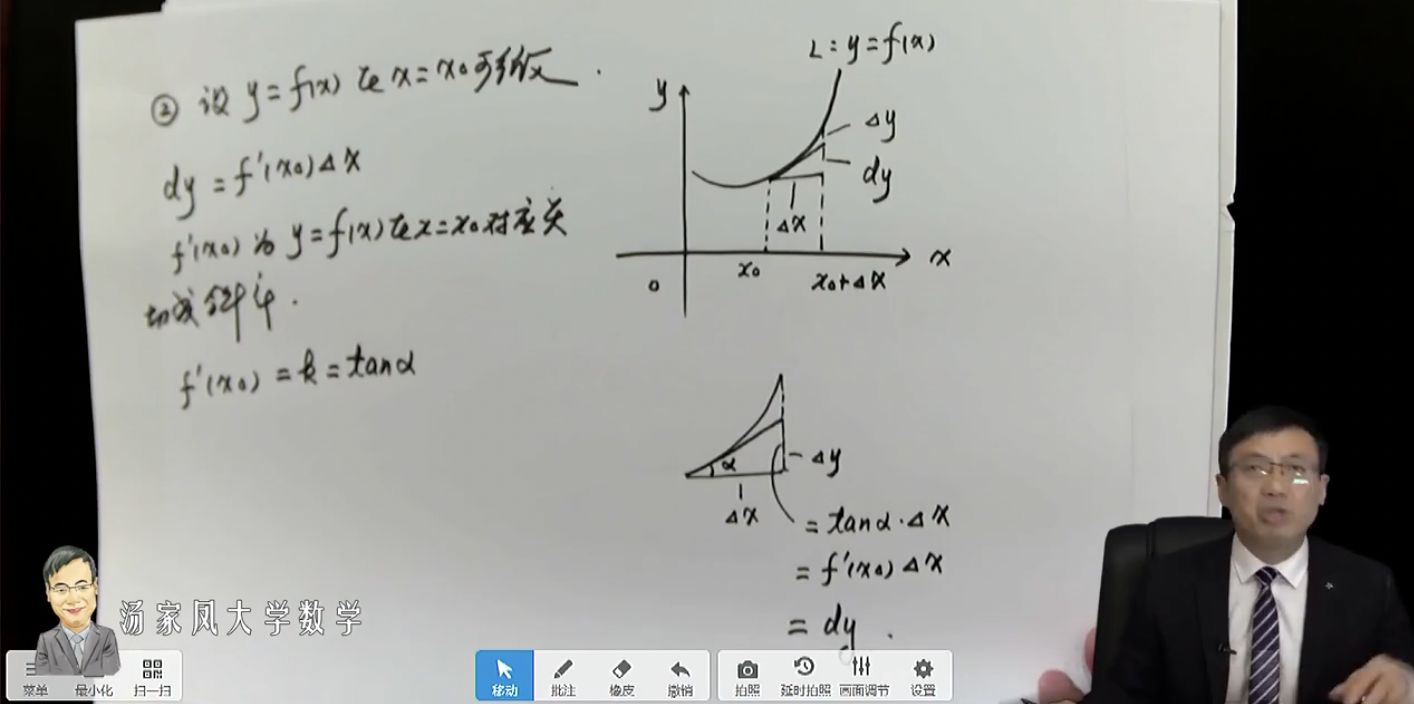 ② 设 y=f(x) 在 x=x₀ 可微.
dy = f'(x₀)Δx
f'(x₀) 为 y=f(x) 在 x=x₀ 对应点
切线斜率.
f'(x₀) = k = tanα
L: y=f(x)
y
Δy
dy
Δx
0
x₀
x₀+Δx
x
α
Δy
Δx
= tanα·Δx
= f'(x₀)Δx
= dy.
汤家凤大学数学
菜单 最小化 扫一扫 移动 批注 橡皮 撤销 拍照 延时拍照 画面调节 设置